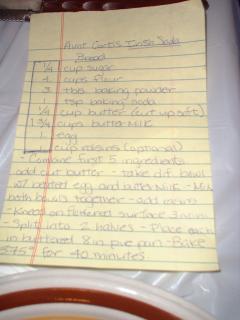 Aunt Carol's Irish Soda
Bread
1/4 cup sugar
4 cups flour
3 tbs baking powder
1 tsp baking soda
1/4 cup butter (cut up soft)
1 3/4 cups butter milk
1 egg
cup raisins (optional)
- Combine first 5 ingredients
add cut butter - take dif. bowl
w/ beated egg and butter milk - Mix
both bowls together - add raisins
- Knead on floured surface 3 min
- Split into 2 halves - Place each
in buttered 8 in pie pan - Bake
375° for 40 minutes